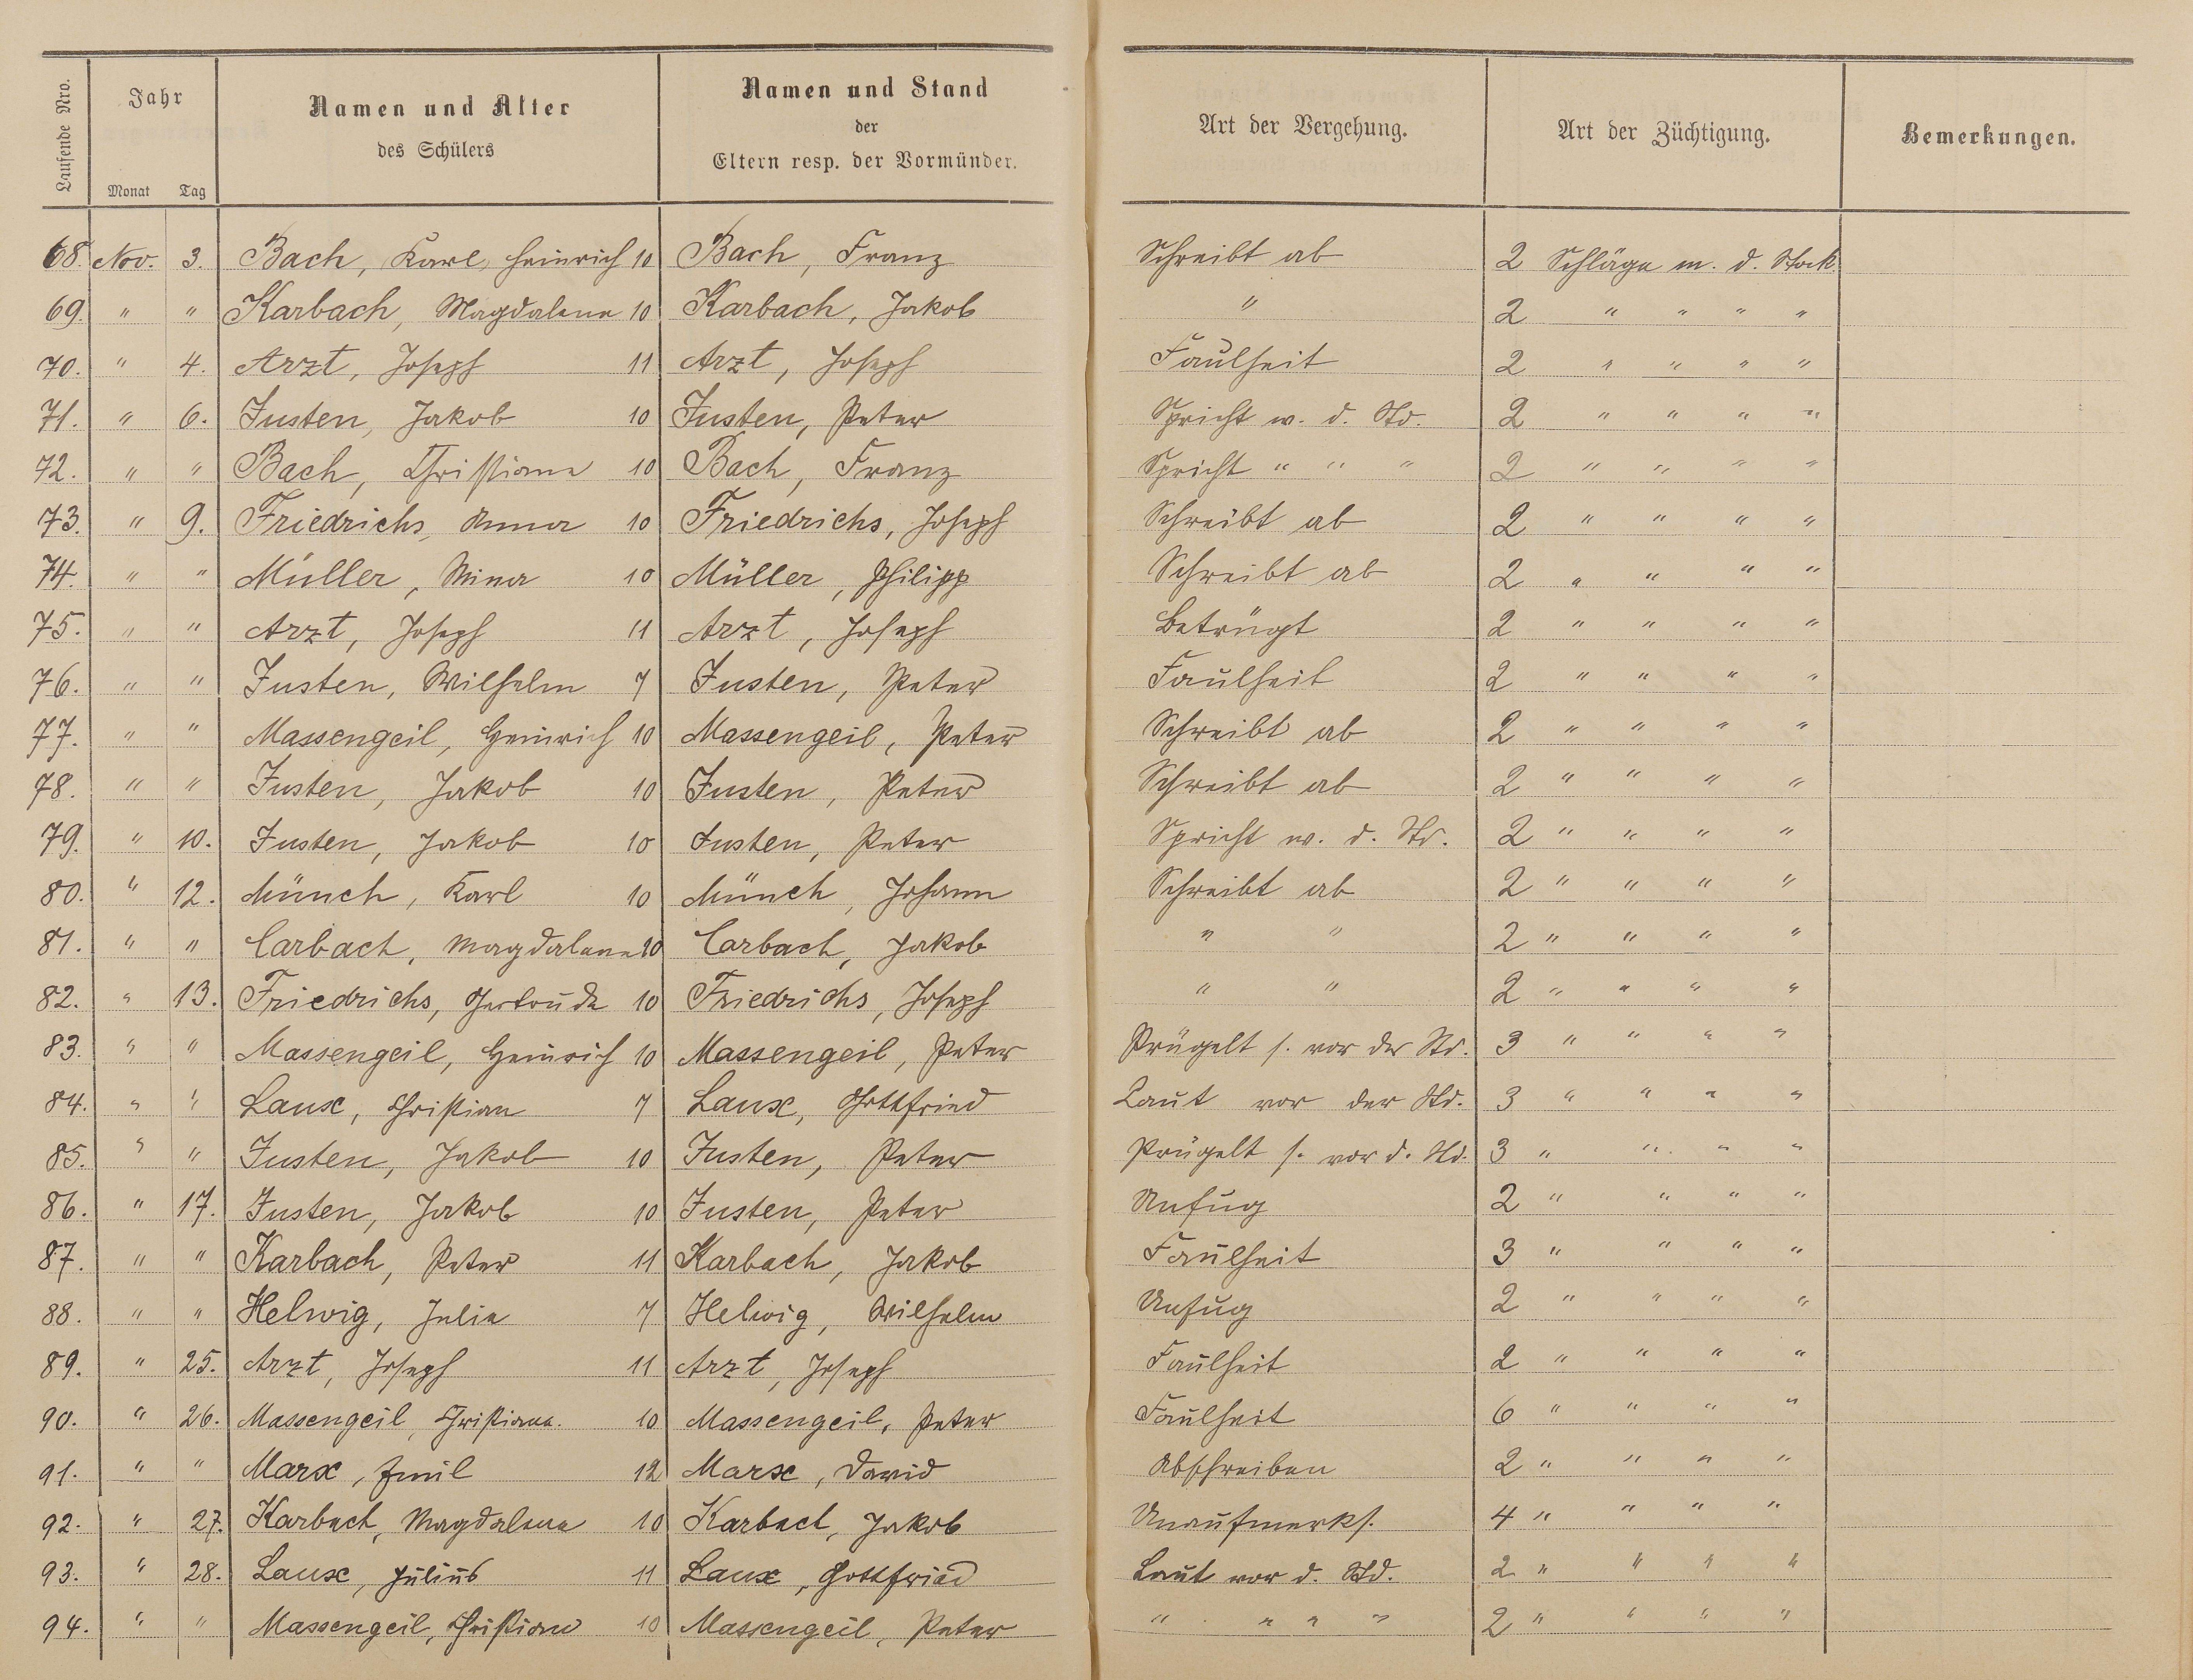 Laufende Nro. Jahr Monat Tag Namen und Alter des Schülers Namen und Stand der Eltern resp. der Vormünder. Art der Vergehung. Art der Züchtigung. Bemerkungen.
68. Nov. 3. Bach, Karl, Heinrich 10 Bach, Franz Schreibt ab 2 Schläge m. d. Stock
69. " " Karbach, Magdalena 10 Karbach, Jakob " 2 " " " "
70. " 4. Arzt, Joseph 11 Arzt, Joseph Faulheit 2 " " " "
71. " 6. Justen, Jakob 10 Justen, Peter Spricht w. d. Std. 2 " " " "
72. " " Bach, Christiane 10 Bach, Franz Spricht " " " 2 " " " "
73. " 9. Friedrichs, Anna 10 Friedrichs, Joseph Schreibt ab 2 " " " "
74. " " Müller, Mina 10 Müller, Philipp Schreibt ab 2 " " " "
75. " " Arzt, Joseph 11 Arzt, Joseph Betrügt 2 " " " "
76. " " Justen, Wilhelm 7 Justen, Peter Faulheit 2 " " " "
77. " " Massengeil, Heinrich 10 Massengeil, Peter Schreibt ab 2 " " " "
78. " " Justen, Jakob 10 Justen, Peter Schreibt ab 2 " " " "
79. " 10. Justen, Jakob 10 Justen, Peter Spricht w. d. Std. 2 " " " "
80. " 12. Münch, Karl 10 Münch, Johann Schreibt ab 2 " " " "
81. " " Carbach, Magdalena 10 Carbach, Jakob " " 2 " " " "
82. " 13. Friedrichs, Gertrude 10 Friedrichs, Joseph " " 2 " " " "
83. " " Massengeil, Heinrich 10 Massengeil, Peter Prügelt s. vor der Std. 3 " " " "
84. " " Laux, Christian 7 Laux, Gottfried Laut vor der Std. 3 " " " "
85. " " Justen, Jakob 10 Justen, Peter Prügelt s. vor d. Std. 3 " " " "
86. " 17. Justen, Jakob 10 Justen, Peter Unfug 2 " " " "
87. " " Karbach, Peter 11 Karbach, Jakob Faulheit 3 " " " "
88. " " Helwig, Julie 7 Helwig, Wilhelm Unfug 2 " " " "
89. " 25. Arzt, Joseph 11 Arzt, Joseph Faulheit 2 " " " "
90. " 26. Massengeil, Christiane. 10 Massengeil, Peter Faulheit 6 " " " "
91. " " Marx, Emil 12 Marx, David Abschreiben 2 " " " "
92. " 27. Karbach, Magdalena 10 Karbach, Jakob Unaufmerks. 4 " " " "
93. " 28. Laux, Julius 11 Laux, Gottfried Laut vor d. Std. 2 " " " "
94. " " Massengeil, Christiane 10 Massengeil, Peter " " " " 2 " " " "